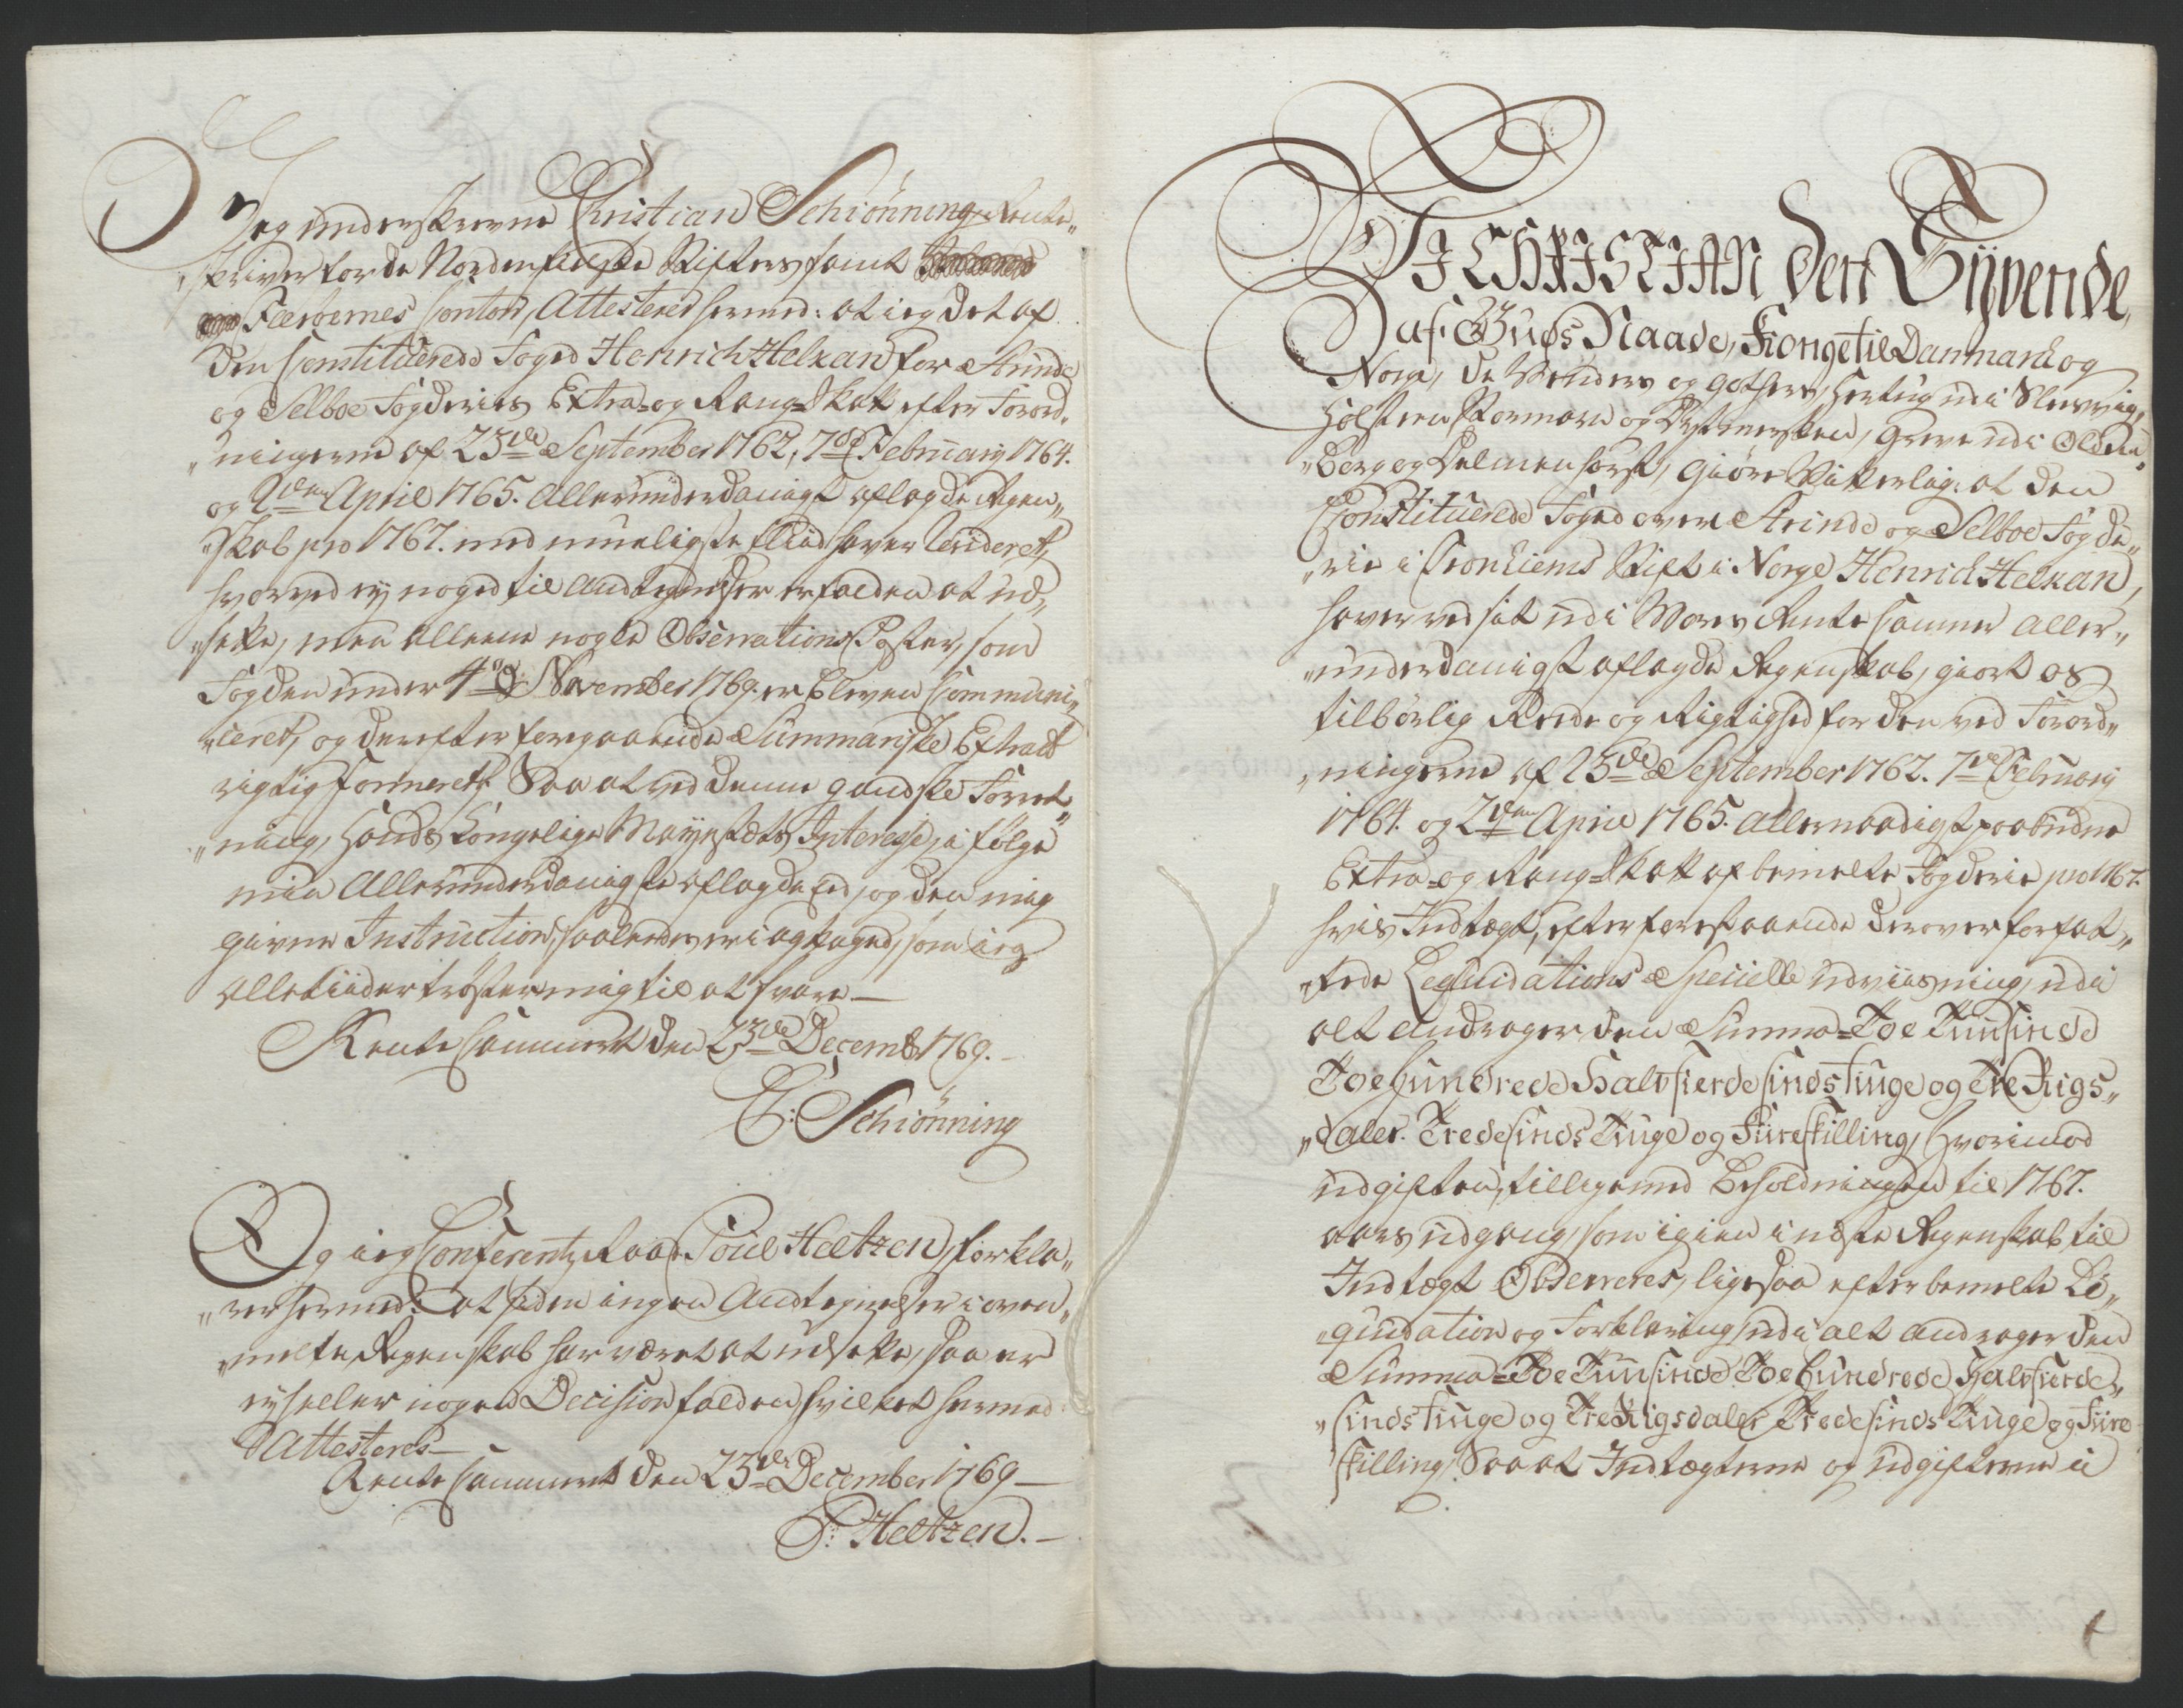 Jeg underskrevne Christian Schiönning, Rente„
„skriver for de Nordenfieldske Stifters samt
Færöernes Contoir, Attesterer hermed: at ieg det af
den Constituerede Foged Henrich Helkan for Strinde
og Selboe Fogderies Extra- og Rang-Skatt efter Forord„
„ningerne af 23de September 1762, 7de February 1764.
og 2den April 1765. allerunderdanigst aflagde Regen„
„skab pro 1767. med mueligste Fliid haver Revideret,
hvorved ey noged til Andtegnelser er falden at ud„
„sætte, men alleene nogle Observations Poster, som
Fogden under 4de November 1769. er bleven Communi„
„ceret, og derefter foregaaende Summariske Extract
rigtig formeret; Saa at ved denne gandske Forret„
„ning, Hands Kongelige Mayestæts Interesse, i følge
min allerunderdanigste aflagde Eed, og den mig
givne Instruction, saaledes er iagttaged, som ieg
alletiider trøster mig til at svare —
Rente Cammeret den 23de Decembr 1769. —
C: Schiönning
Og ieg Conferentz Raad Poul Heltzen, forkla„
„rer hermed: at siden ingen Andtegnelser i oven„
„melte Regenskab har været at udsætte, saa er
ey heller nogen Decision falden, hvilket hermed
Attesteres —
Rente Cammeret den 23de December 1769 —
P: Heltzen. —
VJ CHRISTIAN den Syvende,
af Guds Naade, Konge til Danmark og
Norge, de Venders og Gothers, Hertug udi Slesvig,
Holsteen, Stormarn og Dytmersken, Greve udi Olden„
„borg og Delmenhorst, Giøre Vitterlig: at den
Constituerede Foged over Strinde og Selboe Fogde„
„rie i Tronhiems Stift i Norge Henrich Helkan,
haver ved sit udi Vores Rente Cammer aller„
„underdanigst aflagde Regenskab, giort os
tilbørlig Reede og Rigtighed for den ved Forord„
„ningerne af 23de September 1762. 7de February
1764. og 2den April 1765. allernaadigst paabudne
Extra- og Rang-Skatt af bemelte Fogderie pro 1767.
hvis Indtægt, efter forestaaende derover forfat„
„tede Leqvidations Specielle udviisning, udi
alt andrager den Summa-Toe Tuusinde
Toe Hundrede Halvfierdesindstiuge og Tre Rigs„
„daler Tredesinds Tiuge og Fiire skilling, Hvorimod
udgiften, tilligemed Beholdningen til 1767.
aars udgang, som igien i næste Regenskab til
Indtægt Observeres, ligesaa efter bemelte Le„
„qvidation og Forklaring, udi alt andrager den
Summa-Toe Tuusinde Toe Hundrede Halvfierde„
„sindstiuge og Tre Rigsdaler Tredesinds Tiuge og Fiire
skilling, Saa at Indtægterne og udgifterne i